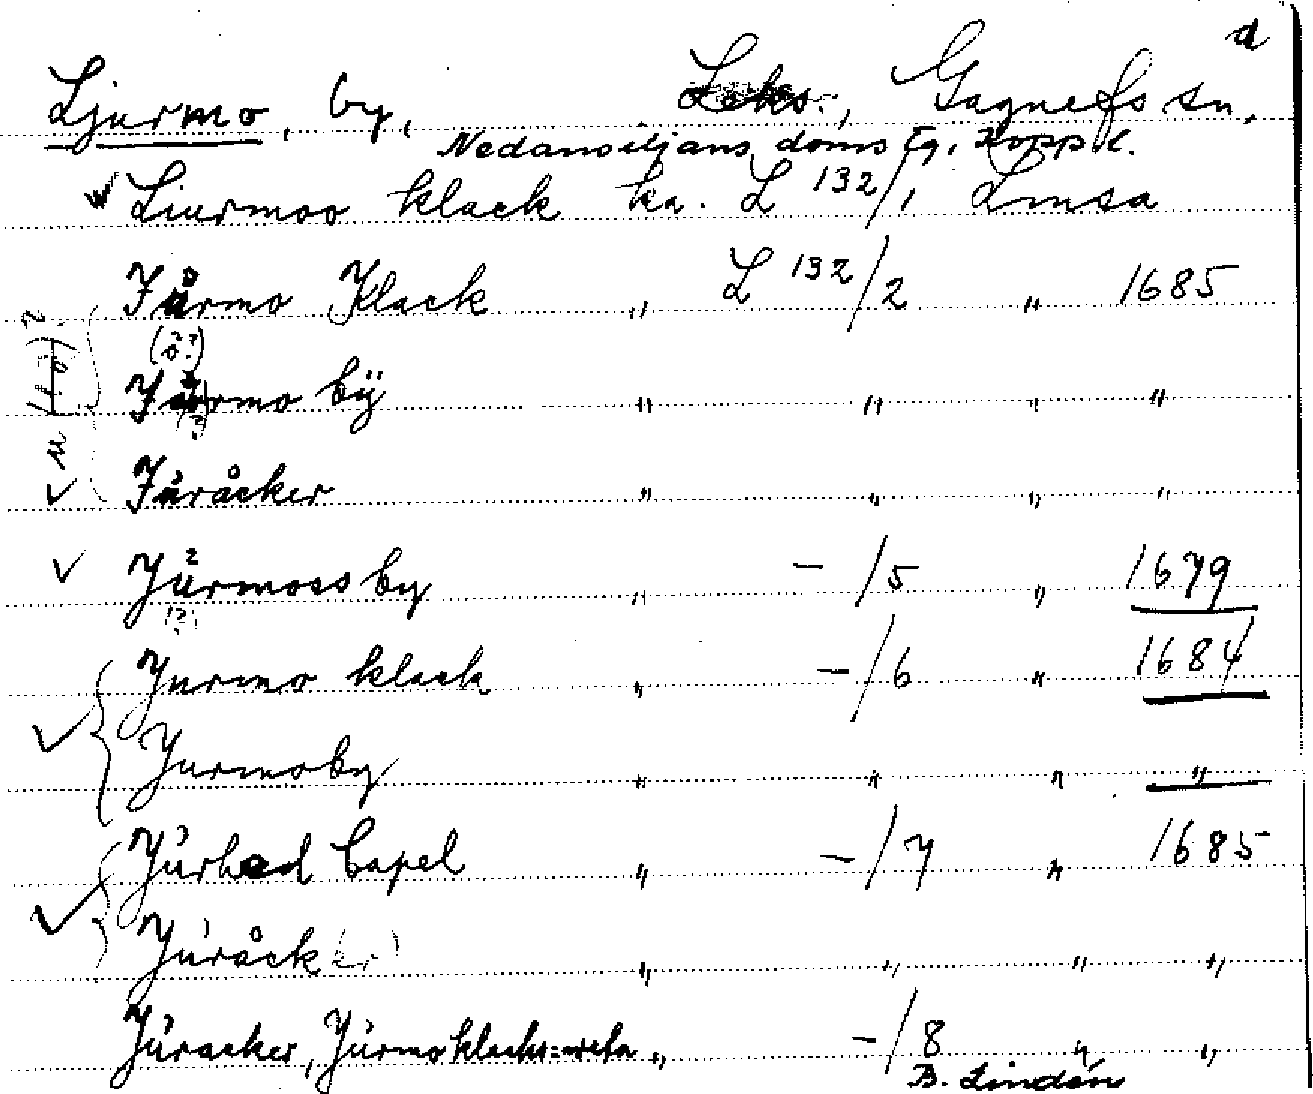 d
Ljurmo, by, Leks., Gagnefs sn,
Nedansiljans doms tg. Kopp l.
Liurmoo klack ka. L 132/1 Lmsa
Jůrmo Klack " L 132/2 " 1685
(ö?)
Jurmo bÿ " " " "
(?)
Juråcker " " " "
Jůrmoss by " - /5 " 1679
(?)
Jurmo klack " - /6 " 1684
Jurmoby " " " "
Jurhed Capel " - /7 " 1685
Juråck(er) " " " "
Juracker, Jurmo klacks " - /8 " "
B. Lindén